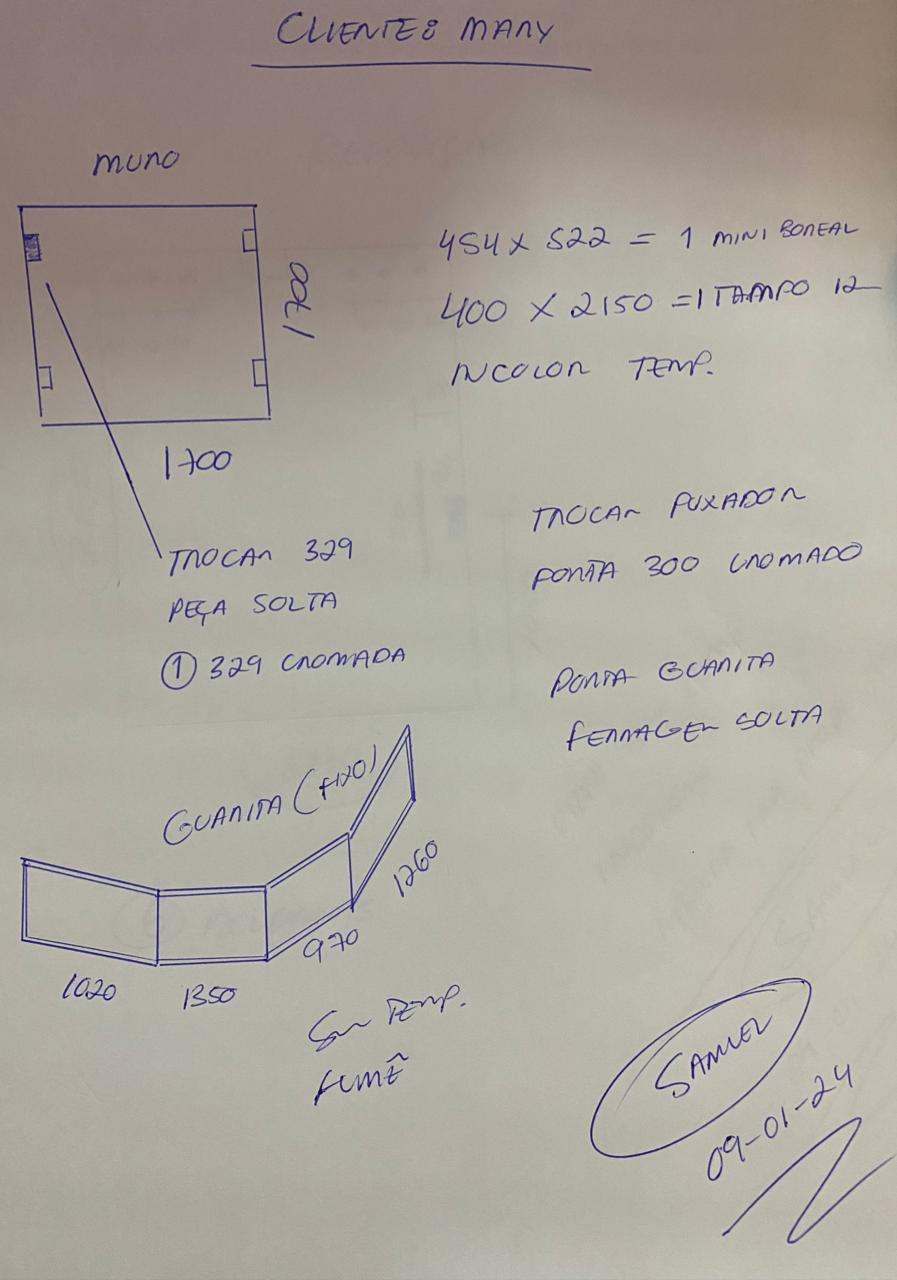 CLIENTE: MARY
MURO
1700
1700
454 x 522 = 1 MINI BOREAL
400 x 2150 = 1 TAMPO 12
INCOLOR TEMP.
TROCAR 329
PEÇA SOLTA
① 329 CROMADA
TROCAR PUXADOR
PORTA 300 CROMADO
PORTA GUARITA
FERRAGEM SOLTA
GUARITA (FIXO)
1020
1350
970
1260
5mm TEMP.
FUMÊ
SAMUEL
09-01-24